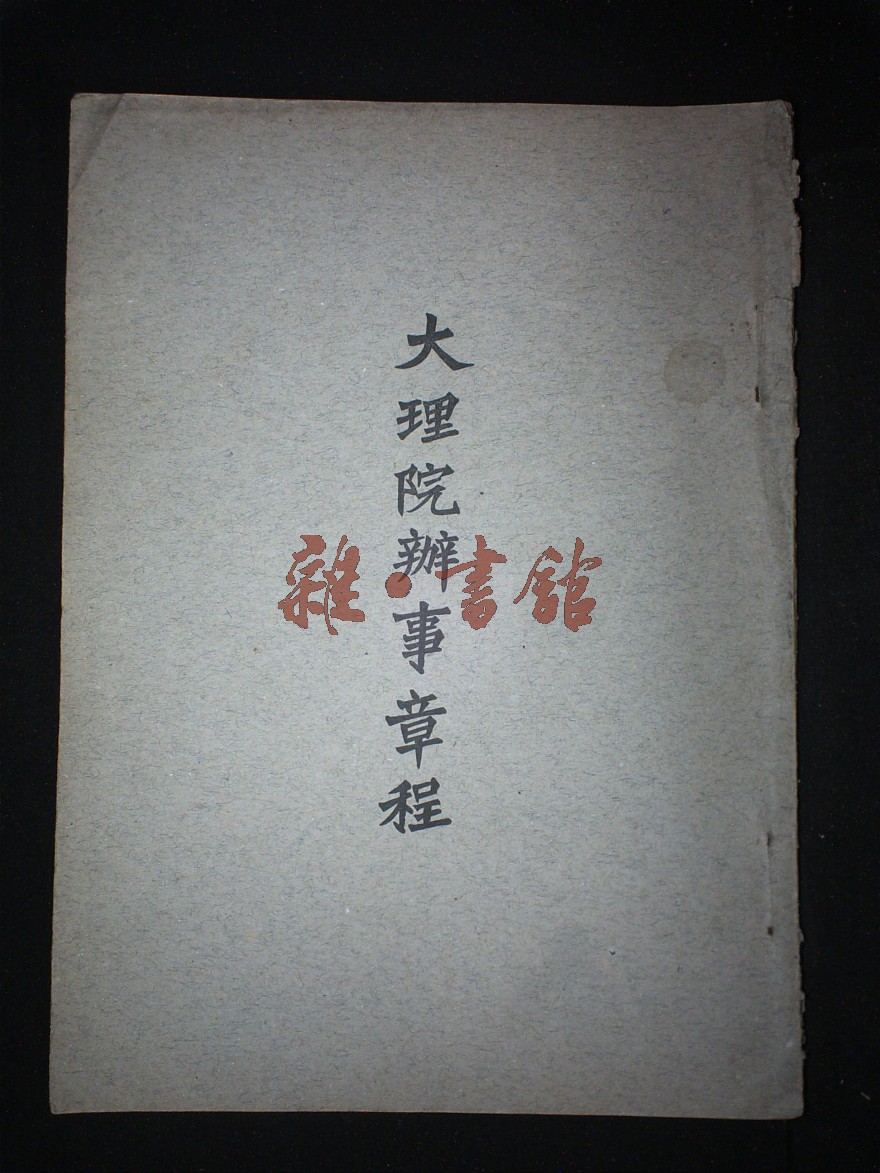 大理院辦事章程
雜·書舘